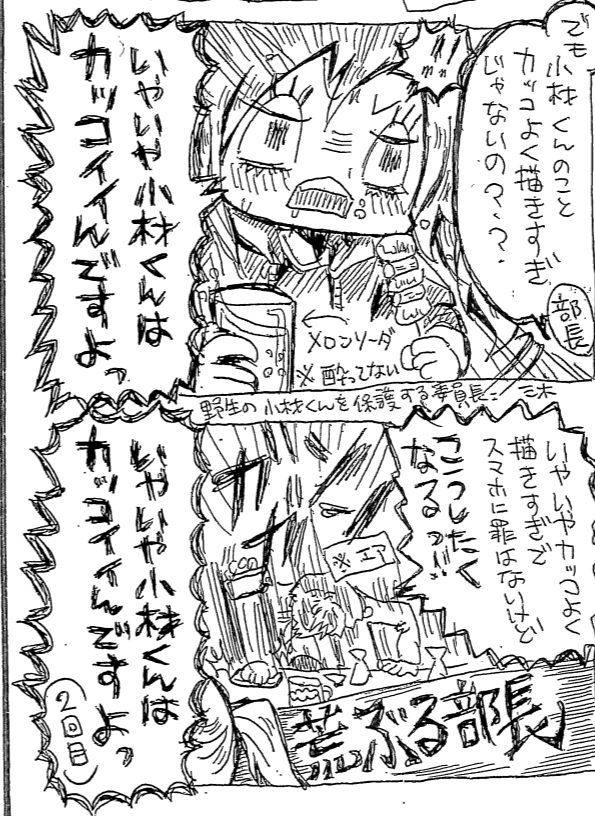 でも
小林くんのこと
カッコよく描きすぎ
じゃないの??
部長
いやいや小林くんは
カッコイイんですよっ
メロンソーダ
※酔ってない
野生の小林くんを保護する委員長: 三木
いやいやカッコよく
描きすぎで
スマホに罪はないけど
こうしたく
なるっ!!
カッ
※エア
いやいや小林くんは
カッコイイんですよっ
(2回目)
荒ぶる部長